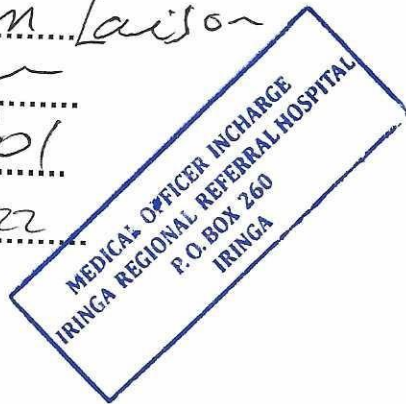 Laison
22
MEDICAL OFFICER INCHARGE
IRINGA REGIONAL REFERRAL HOSPITAL
P.O. BOX 260
IRINGA